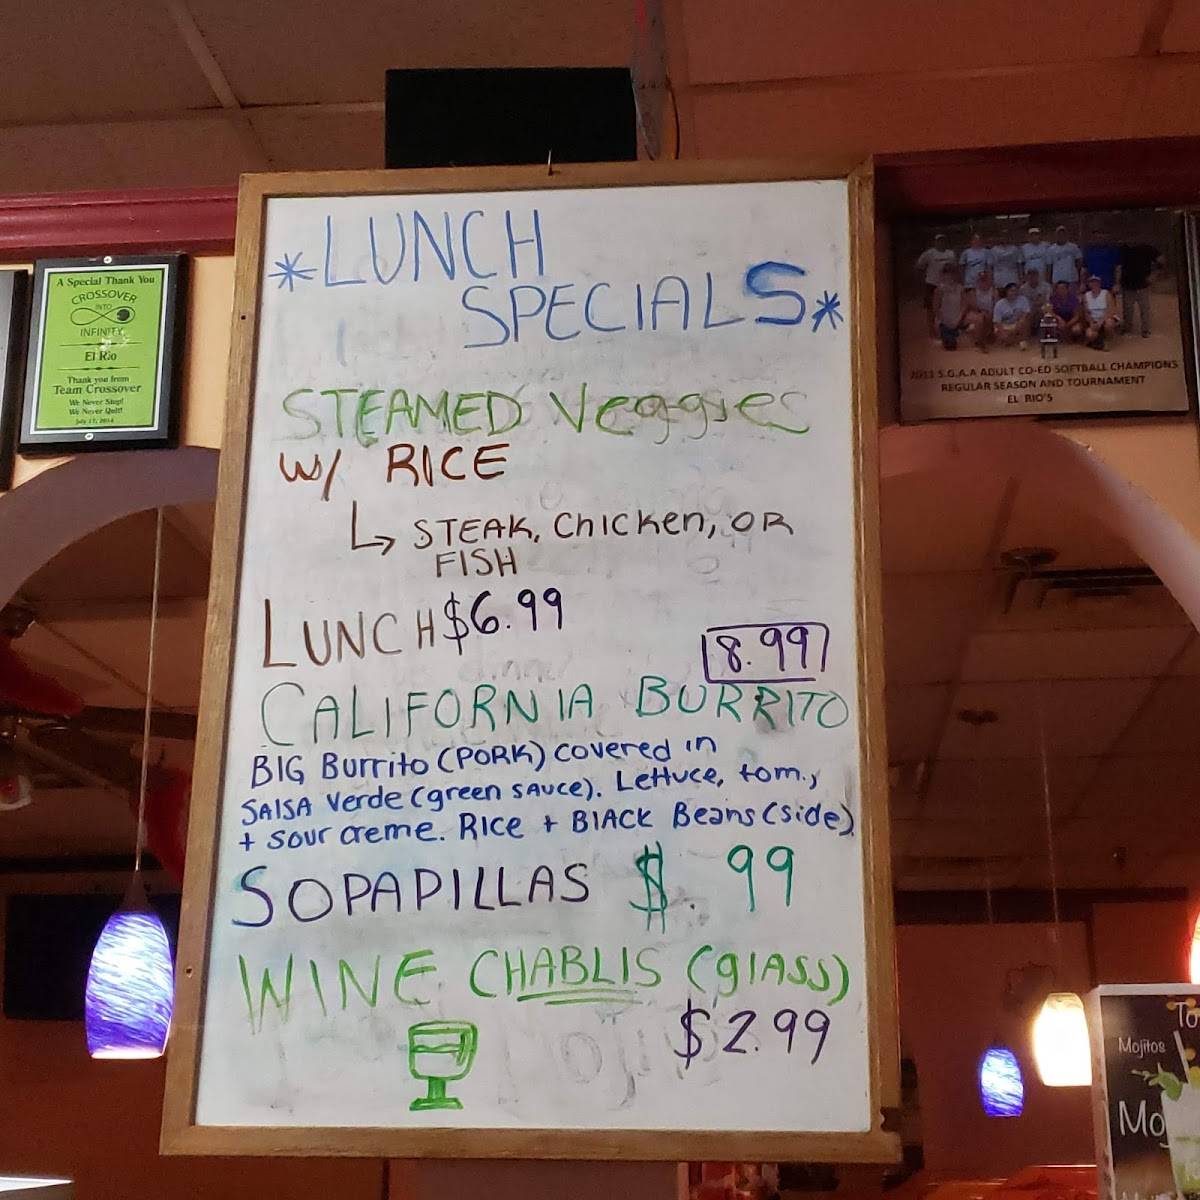 *LUNCH
SPECIALS*
STEAMED Veggies
w/ RICE
↳ STEAK, Chicken, OR
FISH
LUNCH $6.99
8.99
CALIFORNIA BURRITO
BIG Burrito (PORK) covered in
SAlSA verde (green sauce). Lettuce, tom.,
+ sour creme. Rice + BlACK Beans (side)
SOPAPILLAS $.99
WINE CHABLIS (glAss)
$2.99
A Special Thank You
CROSSOVER
INTO
INFINITY
El Rio
Thank you from
Team Crossover
We Never Stop!
We Never Quit!
July 17, 2014
S.G.A.A ADULT CO-ED SOFTBALL CHAMPIONS
REGULAR SEASON AND TOURNAMENT
EL RIO'S
To
Mojitos
Mo